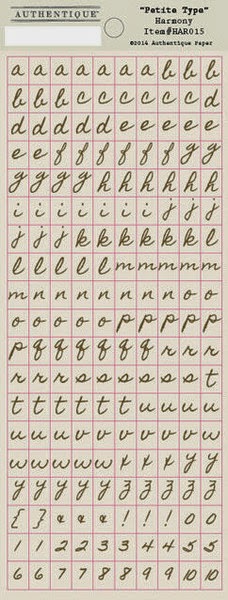 AUTHENTIQUE
"Petite Type"
Harmony
Item#HAR015
©2014 Authentique Paper
a a a a a a b b b
b b b c c c c c d
d d d d d e e e e
e e f f f f f g g
g g g g h h h h h
i i i i i i j j j
j j j k k k k k l
l l l l m m m m m
m n n n n n n o o
o o o o p p p p p
p q q q q q r r r
r r r s s s s s t
t t t t t u u u u
u u u v v v v w w
w w w w x x x y y
y y y y z z z z z
{ } & & ! ! ! 0 0
1 1 2 2 3 3 4 4 5 5
6 6 7 7 8 8 9 9 10 10